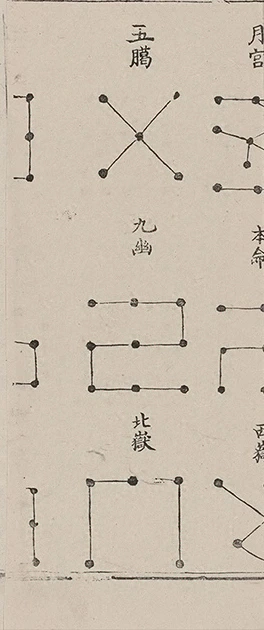 月宮
五臈
本命
九幽
西嶽
北嶽